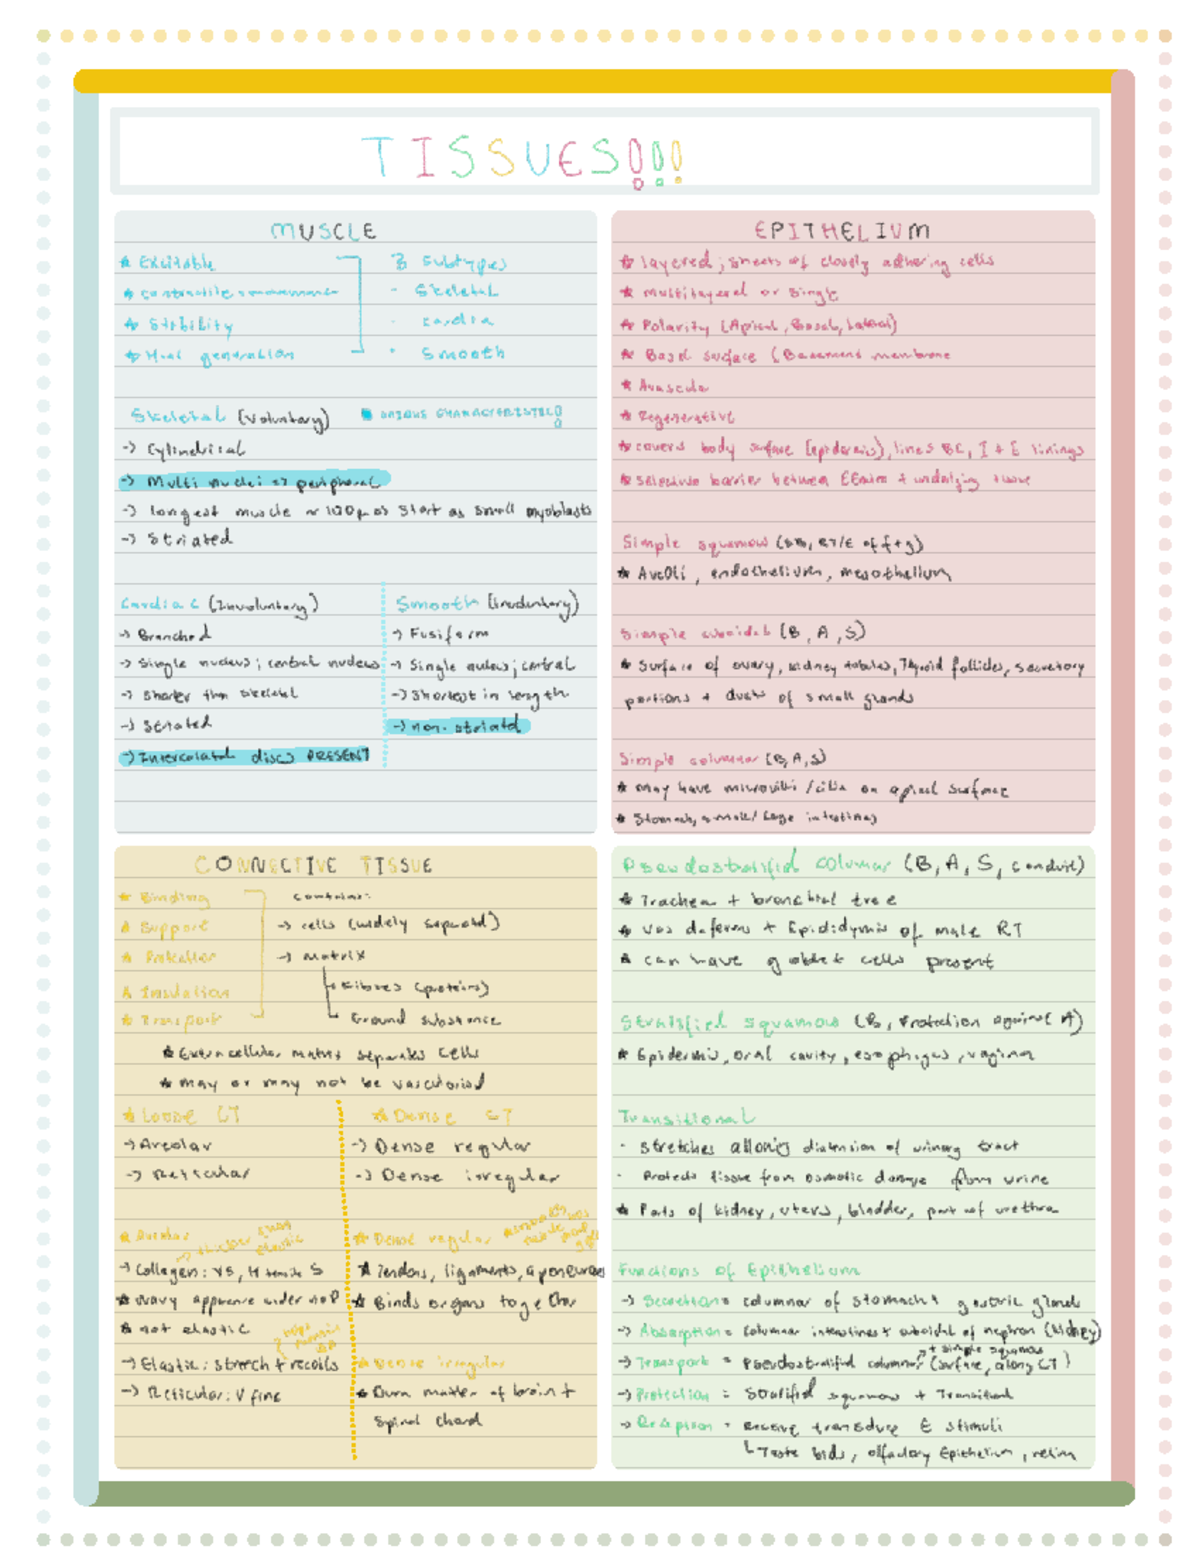 TISSUES!!!
MUSCLE
★ Excitable
★ contractile
★ Stability
★ Heat generation
3 subtypes
- Skeletal
- cardia
• Smooth
Skeletal (voluntary)
UNIQUE CHARACTERISTICS
-> Cylindrical
-> Multi nuclei => peripheral
-> longest muscle start as small myoblasts
-> Striated
Cardiac (Involuntary)
-> Branched
-> Single nucleus; central nucleus
-> Shorter than skeletal
-> Striated
-> Intercalated discs PRESENT
Smooth (Involuntary)
-> Fusiform
-> Single nucleus; central
-> Shortest in length
-> non-striated
EPITHELIUM
★ layered; sheets of closely adhering cells
★ Multilayered or Single
★ Polarity (Apical, Basal, Lateral)
★ Basal surface (Basement membrane
★ Avascular
★ Regenerative
★ covers body surface (epidermis), lines BC, I + E linings
★ selective barrier between + underlying tissue
Simple squamous
★ endothelium, mesothelium
Simple cuboidal (B, A, S)
★ Surface of ovary, kidney tubules, Thyroid follicles, secretory
portions + ducts of small glands
Simple columnar (B, A, S)
★ May have microvilli/cilia on apical surface
★ Stomach, small/large intestines
CONNECTIVE TISSUE
★ Binding
★ Support
★ Protection
★ Insulation
★ Transport
contains:
-> cells (widely separated)
-> matrix
Fibres (proteins)
Ground substance
★ Extracellular matrix separates cells
★ may or may not be vascularised
★ Loose CT
-> Areolar
-> Reticular
★ Dense CT
-> Dense regular
-> Dense irregular
★ Areolar
-> Collagen: VS, H tensile S
★ Wavy apperance under
★ not elastic
-> Elastic: stretch + recoils
-> Reticular: V fine
★ Dense regular
★ Tendons, ligaments, aponeuroses
★ Binds organs together
★ Dense irregular
★ Dura matter of brain +
Spinal chord
Pseudostratified columnar (B, A, S, conduit)
★ Trachea + bronchial tree
★ Vas deferens + Epididymis of male RT
★ can have goblet cells present
Stratified squamous (B, Protection against A)
★ Epidermis, oral cavity, esophagus, vagina
Transitional
- stretches allowing distension of urinary tract
- Protects tissue from osmotic damage from urine
★ Parts of kidney, uterus, bladder, part of urethra
Functions of Epithelium
-> Secretion = columnar of stomach + gastric glands
-> Absorption = columnar intestines + cuboidal of nephron (kidney)
+ simple squamous
-> Transport = Pseudostratified columnar (surface, along CT)
-> Protection = Stratified squamous + Transitional
-> Reception = Receive + transduce E stimuli
Taste buds, olfactory Epithelium, retina